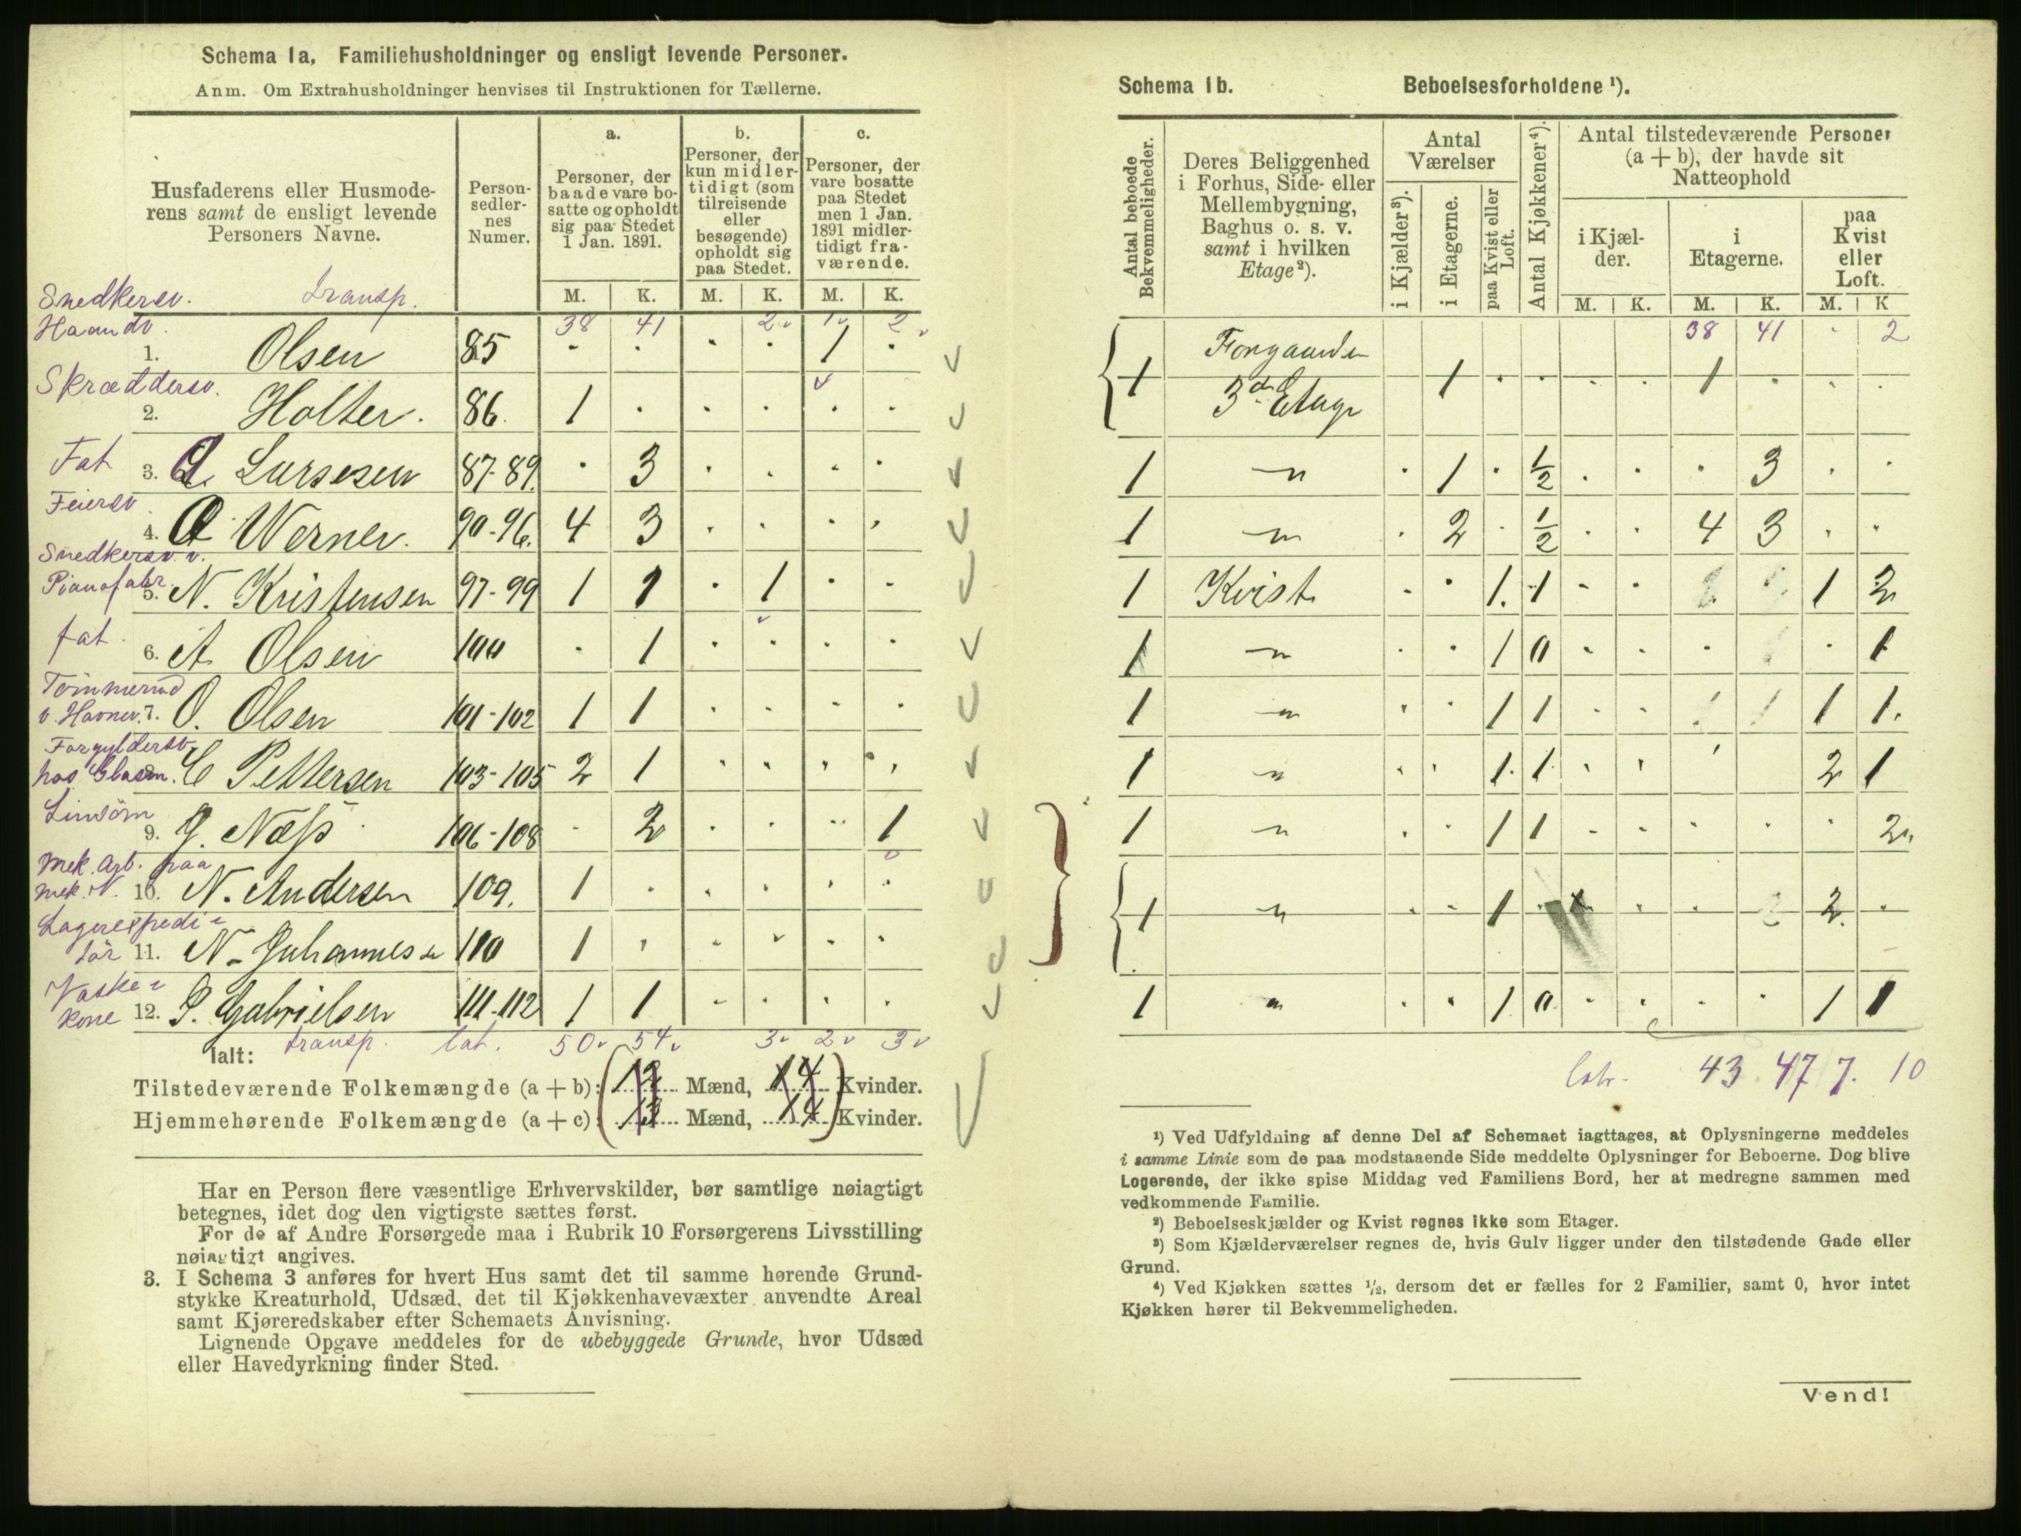 Schema 1a. Familiehusholdninger og ensligt levende Personer.
Anm. Om Extrahusholdninger henvises til Instruktionen for Tællerne.
Husfaderens eller Husmode-
rens samt de ensligt levende
Personers Navne.
Person-
sedler-
nes
Numer.
a.
Personer, der
baade vare bo-
satte og opholdt
sig paa Stedet
1 Jan. 1891.
b.
Personer, der
kun midler-
tidigt (som
tilreisende
eller
besøgende)
opholdt sig
paa Stedet.
c.
Personer, der
vare bosatte
paa Stedet
men 1 Jan.
1891 midler-
tidigt fra-
værende.
M. K. M. K. M. K.
Snedkersv. transp.
38 41 2 1 2
Haandv.
1. Olsen 85 . . . . 1 .
Skræddersv.
2. Holter. 86. 1 . . . . .
Fat
3. Larssen 87-89. . 3 . . . .
Feiersv.
4. Werner. 90-96. 4 3 . . . .
Snedkersv. v.
Pianofabr.
5. N. Kristensen 97-99 1 1 . 1 . .
fat.
6. A Olsen 100 . 1 . . . .
Tømmermd
v. Havnev. 7. O. Olsen 101-102 1 1 . . . .
Forgyldersv.
hos Glasm. 8. C Pettersen 103-105 2 1 . . . .
Linsøm
9. J. Næss 106-108 . 2 . . . 1
Mek. Arb. paa
mek. V. 10. N. Andersen 109. 1 . . . . .
Lagerexpedi-
tør 11. N. Johannesen 110 1 . . . . .
Vaske-
kone 12. P. Gabrielsen 111-112 1 1 . . . .
Ialt: transp. lat. 50 54 3 2 3
Tilstedeværende Folkemængde (a + b): 12 Mænd, 14 Kvinder.
Hjemmehørende Folkemængde (a + c): 13 Mænd, 14 Kvinder.
Har en Person flere væsentlige Erhvervskilder, bør samtlige nøiagtigt
betegnes, idet dog den vigtigste sættes først.
For de af Andre Forsørgede maa i Rubrik 10 Forsørgerens Livsstilling
nøiagtigt angives.
3. I Schema 3 anføres for hvert Hus samt det til samme hørende Grund-
stykke Kreaturhold, Udsæd, det til Kjøkkenhavevæxter anvendte Areal
samt Kjøreredskaber efter Schemaets Anvisning.
Lignende Opgave meddeles for de ubebyggede Grunde, hvor Udsæd
eller Havedyrkning finder Sted.
Schema 1b. Beboelsesforholdene ¹).
Antal beboede
Bekvemmeligheder.
Deres Beliggenhed
i Forhus, Side- eller
Mellembygning,
Baghus o. s. v.
samt i hvilken
Etage ²).
Antal
Værelser
i Kjælder ³).
i Etagerne.
paa Kvist eller
Loft.
Antal Kjøkkener ⁴).
Antal tilstedeværende Personer
(a + b), der havde sit
Natteophold
i Kjæl-
der.
i
Etagerne.
paa
Kvist
eller
Loft.
M. K. M. K. M. K
38 41 . 2
1 Forgaarden
3die Etage . 1 . . . . 1 . . .
1 — . 1 . 1/2 . . . 3 . .
1 — . 2 . 1/2 . . 4 3 . .
1 Kvist . . 1. 1 . . 1 2
1 — . . 1 0 . . . . 1
1 — . . 1 1 . . 1 1.
1 — . . 1. 1 . . 2 1
1 — . . 1 1 . . . . . 2
1 — . . 1 . . . 2. .
1 — . . 1. 0 . . . . 1 1
latr. 43 47 7. 10
¹) Ved Udfyldning af denne Del af Schemaet iagttages, at Oplysningerne meddeles
i samme Linie som de paa modstaaende Side meddelte Oplysninger for Beboerne. Dog blive
Logerende, der ikke spise Middag ved Familiens Bord, her at medregne sammen med
vedkommende Familie.
²) Beboelseskjælder og Kvist regnes ikke som Etager.
³) Som Kjælderværelser regnes de, hvis Gulv ligger under den tilstødende Gade eller
Grund.
⁴) Ved Kjøkken sættes ½, dersom det er fælles for 2 Familier, samt 0, hvor intet
Kjøkken hører til Bekvemmeligheden.
Vend!